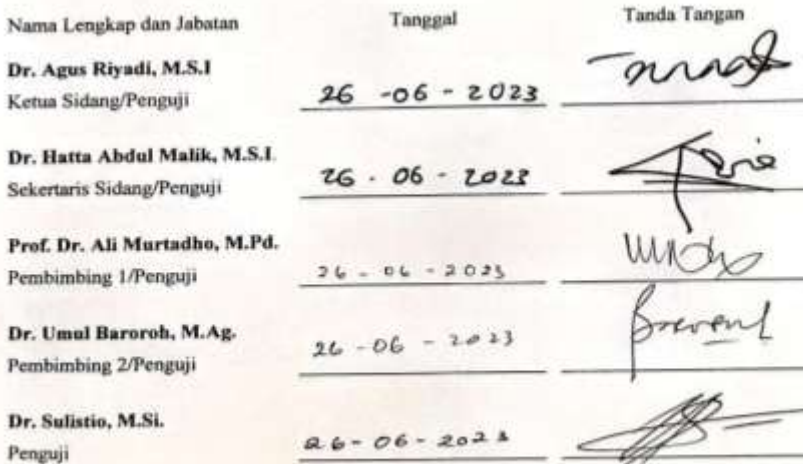 Nama Lengkap dan Jabatan Tanggal Tanda Tangan
Dr. Agus Riyadi, M.S.I
Ketua Sidang/Penguji 26 -06 - 2023
Dr. Hatta Abdul Malik, M.S.I.
Sekertaris Sidang/Penguji 26 - 06 - 2023
Prof. Dr. Ali Murtadho, M.Pd.
Pembimbing 1/Penguji 26 - 06 - 2023
Dr. Umul Baroroh, M.Ag.
Pembimbing 2/Penguji 26 -06 - 2023
Dr. Sulistio, M.Si.
Penguji 26- 06- 2023